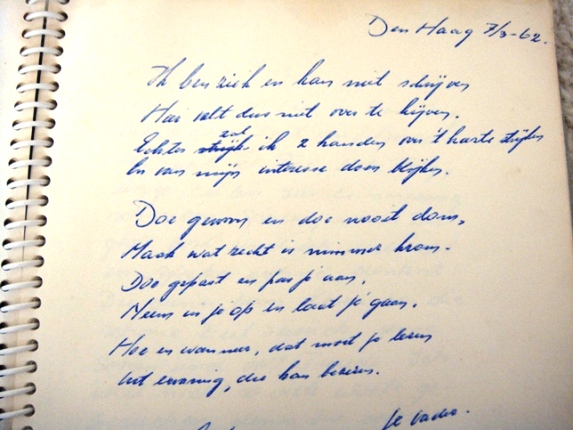 Den Haag 7/3-62.
Ik ben ziek en kan niet schrijven
Hier valt dus niet over te kijven.
Echter zal ik 2 handen over 't harte strijken
En van mijn interesse doen blijken.
Doe gewoon en doe nooit dom,
Maak wat recht is nimmer krom.
Doe gepast en pas je aan,
Neem in je op en laat je gaan.
Hoe en wanneer, dat moet je leren
uit ervaring, die kan bezeren.
je vader.